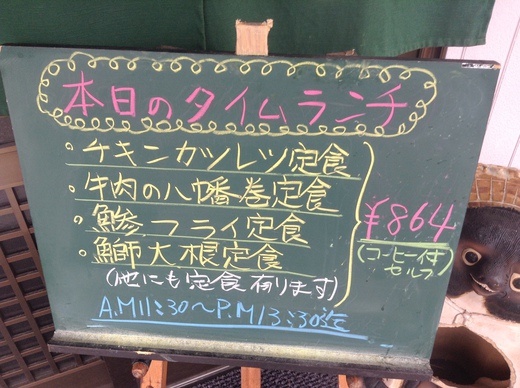 本日のタイムランチ
・チキンカツレツ定食
・牛肉の八幡巻定食
・鯵フライ定食
・鰤大根定食
(他にも定食有ります)
¥864
(コーヒー付き
セルフ)
A.M11:30〜P.M13:30迄